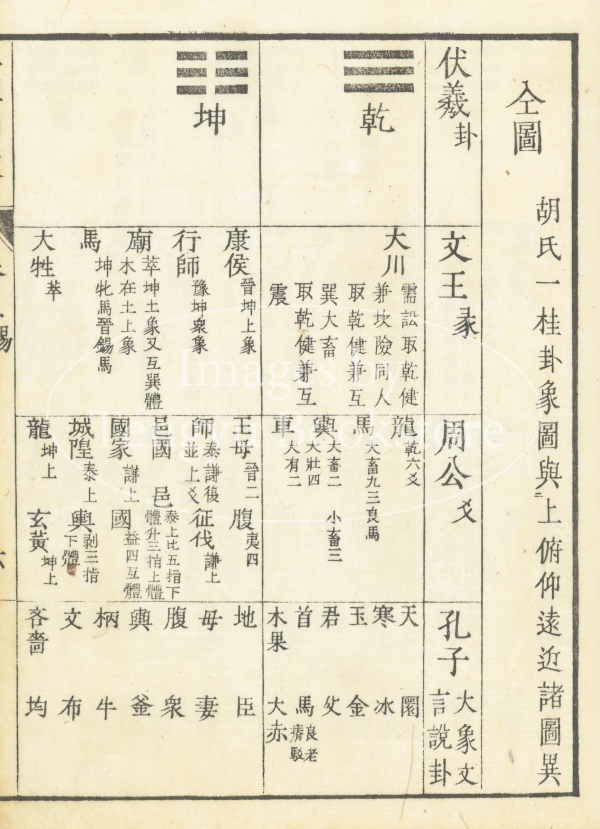 仝圖
胡氏一桂卦象圖與上俯仰遠近諸圖異
伏羲卦
文王彖
周公爻
孔子大象文言說卦
乾
大川 需訟取乾健
兼坎險同人
取乾健兼互
巽大畜
取乾健兼互
震
龍 乾六爻
馬 大畜九三良馬
輿 大畜二 小畜三 大壯四
車 大有二
天 圜
寒 冰
玉 金
君 父
首 馬 良老瘠駁
木果 大赤
坤
康侯 晉坤上象
行師 豫坤衆象
廟 萃坤土象又互巽體
木在土上象
馬 坤牝馬晉錫馬
大牲 萃
王母 晉二 腹 夷四
師 泰謙復並上爻 征伐 謙上
邑國 邑 泰上比五指下體升三指上體
國家 謙上 國 益四互體
城隍 泰上 輿 剥三指下體
龍 坤上 玄黃 坤上
地 臣
母 妻
腹 衆
輿 釜
柄 牛
文 布
吝嗇 均
Images by
Bookstore